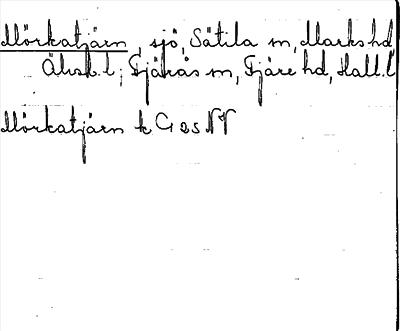 Mörkatjärn, sjö, Sätila sn, Marks hd
Älvsb. l; Fjärås sn, Fjäre hd, Hall. l
Mörkatjärn k G 25 NV